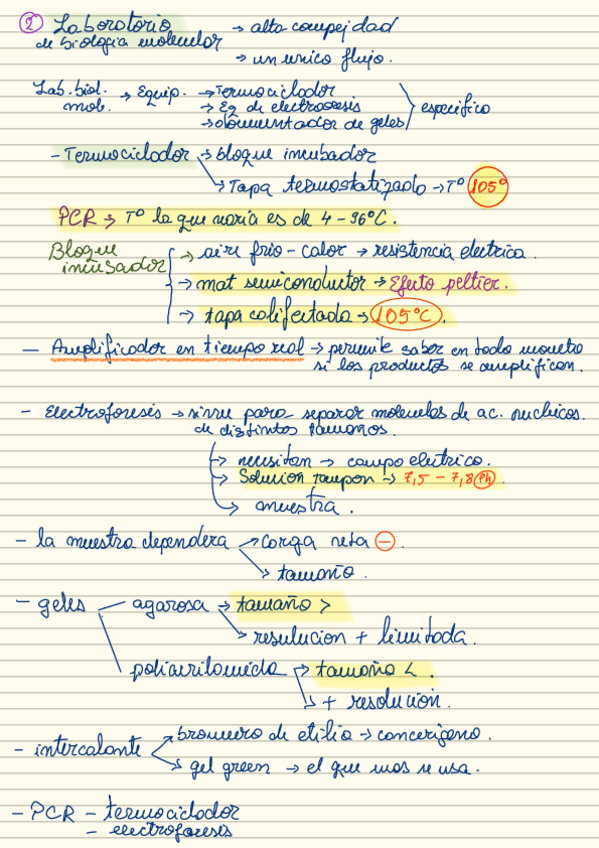 ② Laboratorio → alta compejidad
de biología molecular → un unico flujo.
Lab. biol. mol. → Equip. → Termociclador
→ Eq de electroforesis
→ documentador de geles } especifico
- Termociclador → bloque incubador
→ Tapa termostatizado → Tº 105º
PCR → Tº la que varia es de 4 - 96ºC.
Bloque incubador { → aire frio - calor → resistencia electrica.
→ mat semiconductor → Efecto peltier.
→ tapa calefectada → 105ºC.
- Amplificador en tiempo real → permite saber en todo momento
si los productos se amplifican.
- Electroforesis → sirve para separar moleculas de ac. nucleicos.
de distintos tamaños.
→ necesitan → campo electrico.
→ Solucion tampon → 7,5 - 7,8 Ph.
→ muestra.
- la muestra dependera → carga neta -.
→ tamaño.
- geles — agarosa → tamaño >
→ resulucion + limitada.
poliacrilamida → tamaño < .
→ + resolucion.
- intercalante → bromuro de etilio → cancerigeno.
→ gel green → el que mas se usa.
- PCR - termociclador
- electroforesis